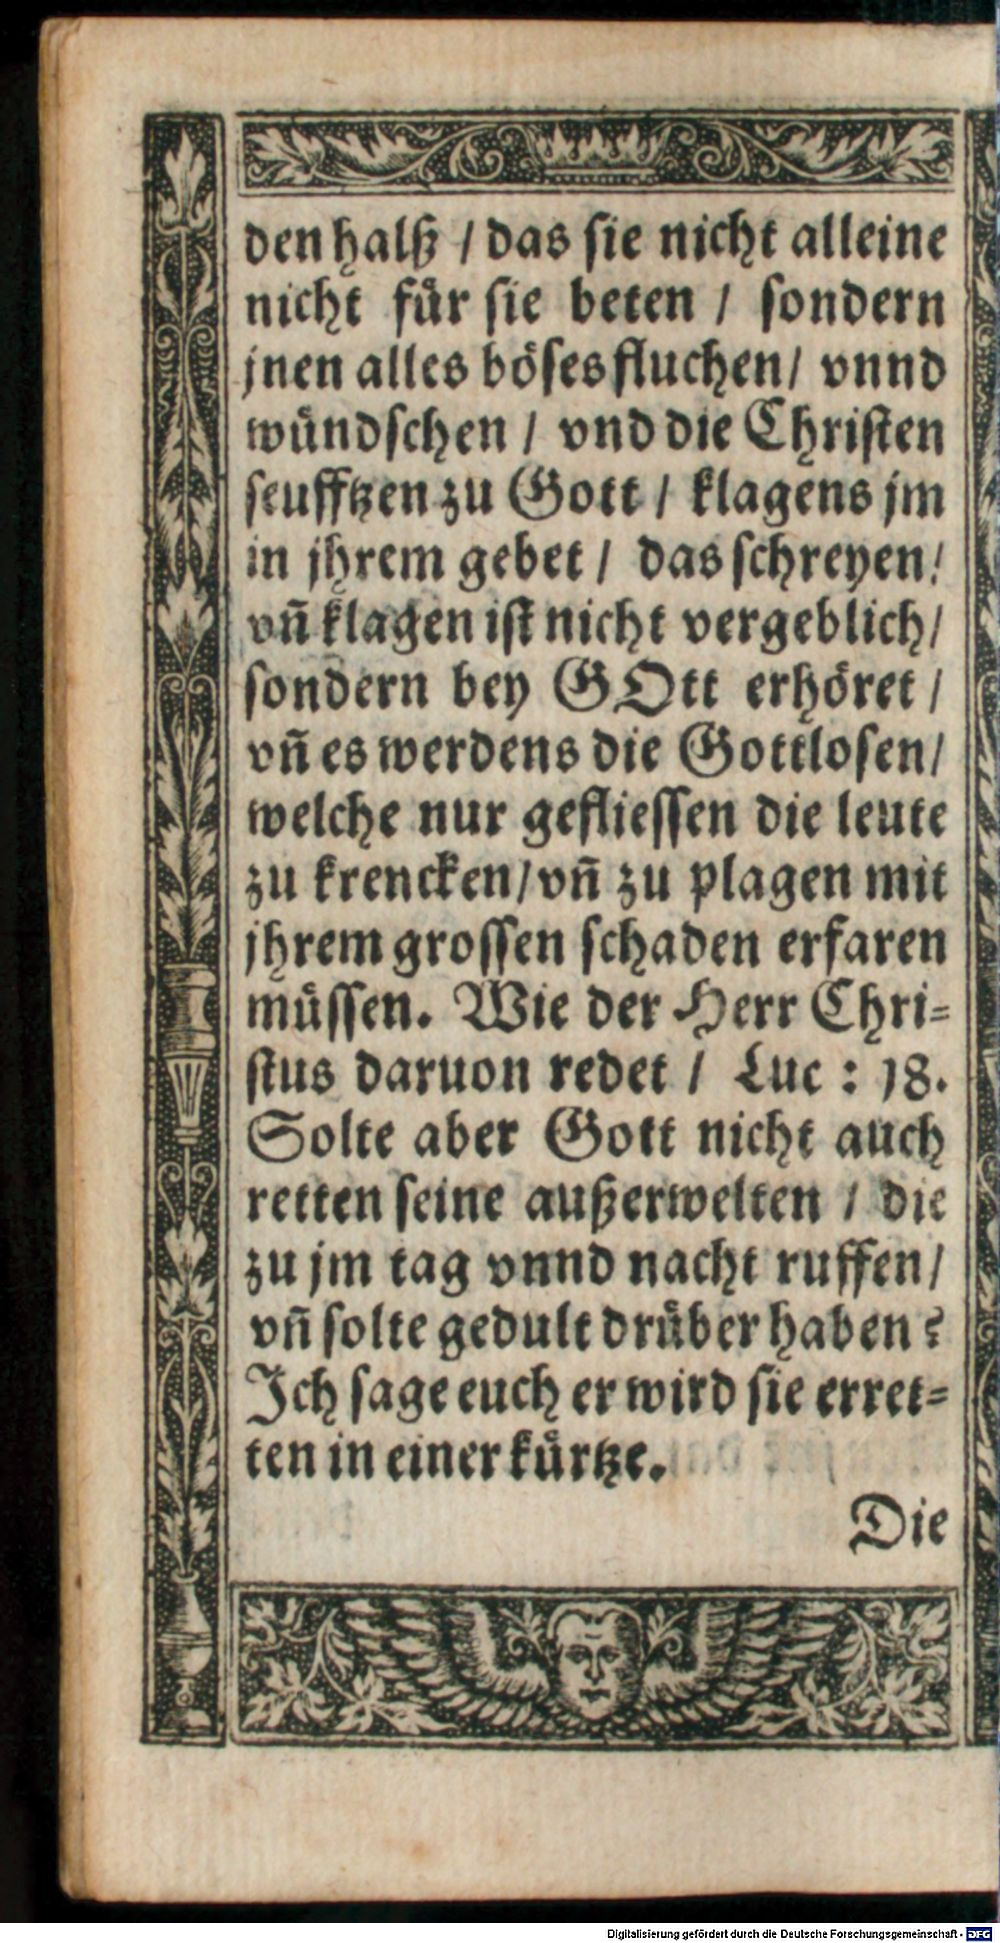 den halß / das sie nicht alleine
nicht fuͤr sie beten / sondern
jnen alles boͤses fluchen / vnnd
wuͤndschen / vnd die Christen
seufftzen zu Gott / klagens jm
in jhrem gebet / das schreyen /
vñ klagen ist nicht vergeblich /
sondern bey GOtt erhoͤret /
vñ es werdens die Gottlosen /
welche nur gefliessen die leute
zu krencken / vñ zu plagen mit
jhrem grossen schaden erfaren
muͤssen. Wie der Herr Chri-
stus daruon redet / Luc : 18.
Solte aber Gott nicht auch
retten seine außerwelten / die
zu jm tag vnnd nacht ruffen /
vñ solte gedult druͤber haben?
Ich sage euch er wird sie erret-
ten in einer kuͤrtze.
Die
Digitalisierung gefördert durch die Deutsche Forschungsgemeinschaft - DFG